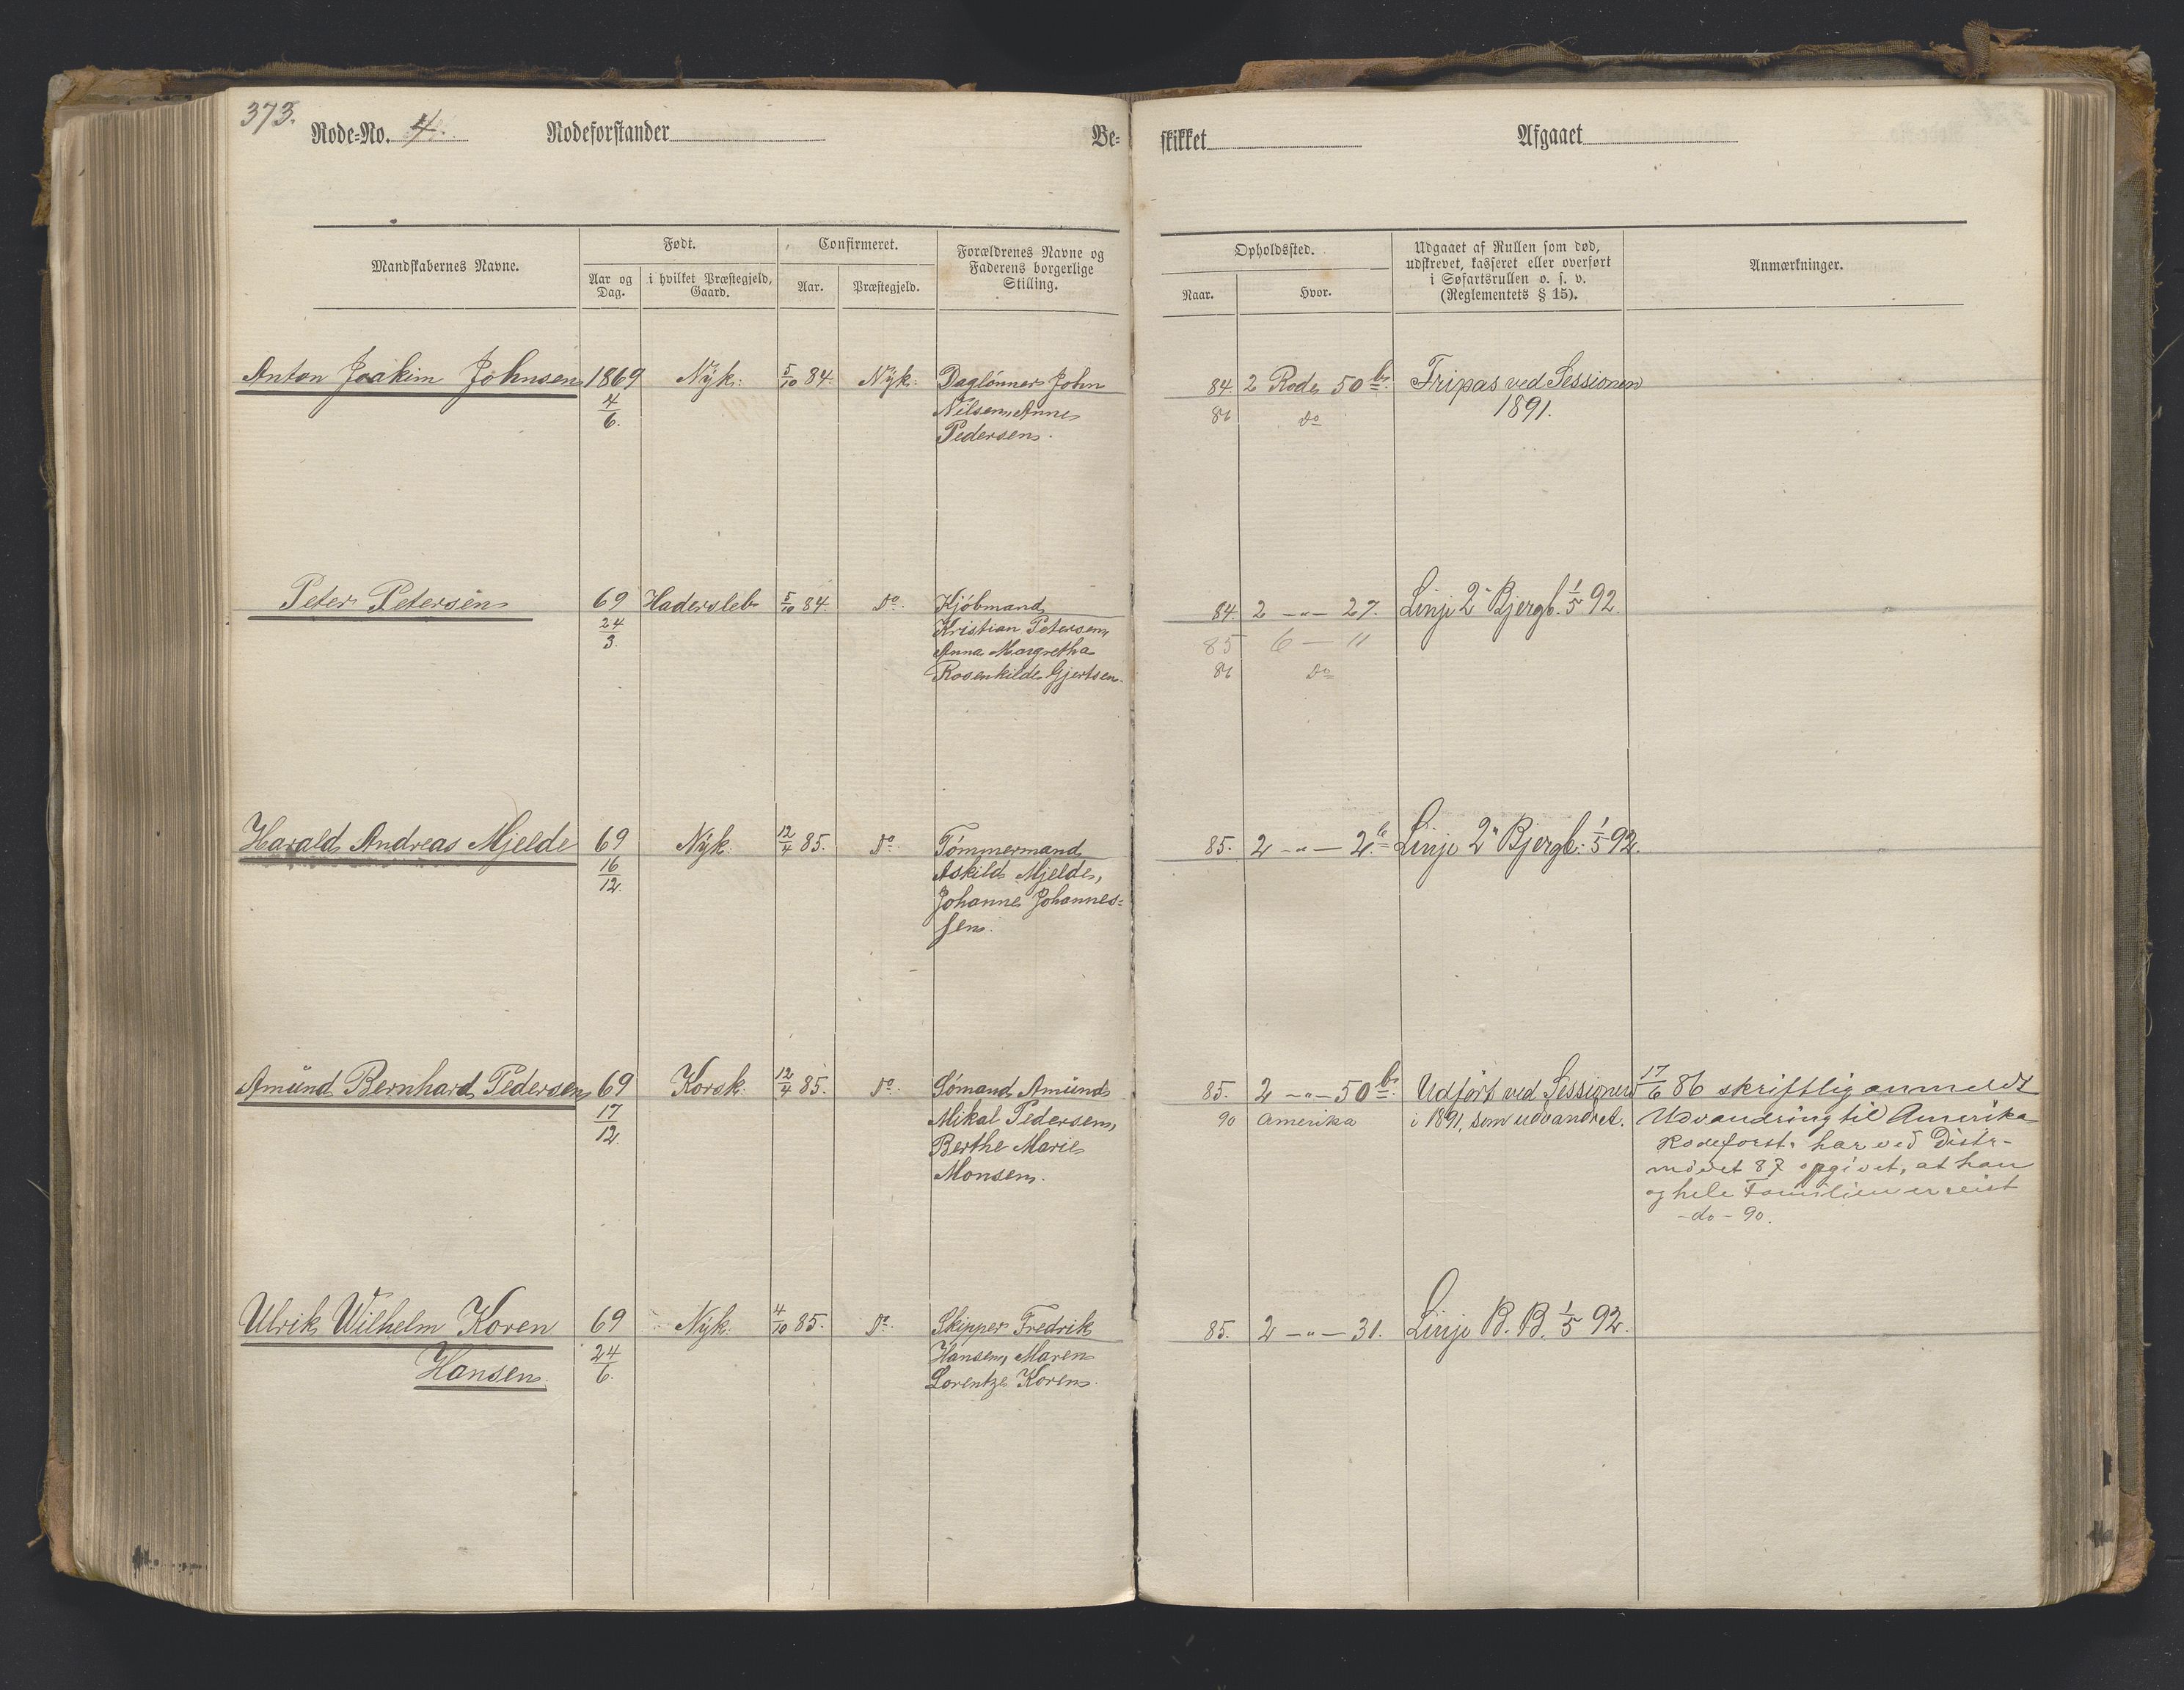 373.
Rode-No. 4. Rodeforstander Be-
skikket Afgaaet
Mandskabernes Navne.
Født.
Aar og Dag.
i hvilket Præstegjeld, Gaard.
Confirmeret.
Aar.
Præstegjeld.
Forældrenes Navne og
Faderens borgerlige
Stilling.
Opholdssted.
Naar.
Hvor.
Udgaaet af Rullen som død,
udskrevet, kasseret eller overført
i Søfartsrullen o. s. v.
(Reglementets § 15).
Anmærkninger.
Anton Joakim Johnsen 1869 Nyk: 5/10 84. Nyk: Daglønner John
4/6. Nilsen, Anne
Pedersen.
84. 2 Rode 50 b. Fripas ved Sessionen
86 do 1891.
Peter Petersen 69 Hadersleb 5/10 84. do. Kjøbmand
24/3. Kristian Petersen,
Anna Margretha
Rosenkilde Gjertsen.
84. 2 -"- 27. Linje 2" Bjergb. 1/5 92.
85 6 - 11
86 do
Harald Andreas Mjelde 69 Nyk. 12/4 85. do. Tømmermand
16/12. Askild Mjelde,
Johanne Johannes-
sen.
85. 2 -"- 2 b. Linje 2" Bjergb. 1/5 92.
Amund Bernhard Pedersen 69 Korsk. 12/4 85. do. Sømand Amund
17/12. Mikal Pedersen,
Berthe Marie
Monsen.
85. 2 -"- 50 b. Udført ved Sessionen 17/6 86 skriftlig anmeldt
90 Amerika i 1891, som udvandret. Udvandring til Amerika
Rodeforst. har ved Distr-
mødet 87 opgivet, at han
og hele Familien er reist
-do- 90.
Ulrik Wilhelm Koren 69 Nyk. 4/10 85. do. Skipper Fredrik
Hansen. 24/6. Hansen, Maren
Lorentze Koren.
85. 2 -"- 31. Linje B. B. 1/5 92.